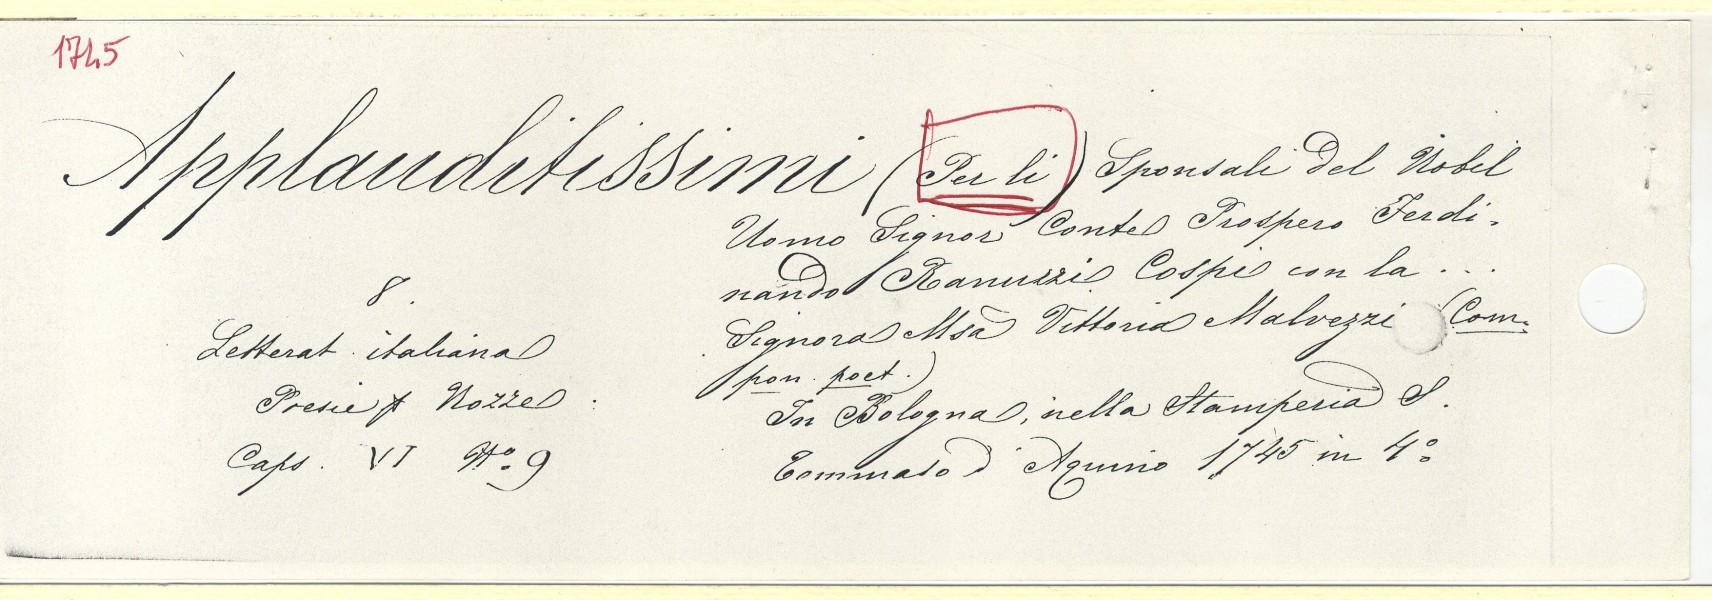 1745
Applauditissimi (Per li) Sponsali del Nobil
Uomo Signor Conte Prospero Ferdi-
nando Ranuzzi Cospi con la ...
Signora Msa Vittoria Malvezzi (Com-
pon. poet.)
In Bologna, nella Stamperia S.
Tommaso d'Aquino 1745 in 4º
8.
Letterat. italiana
Poesie p Nozze.
Caps. VI Nº 9